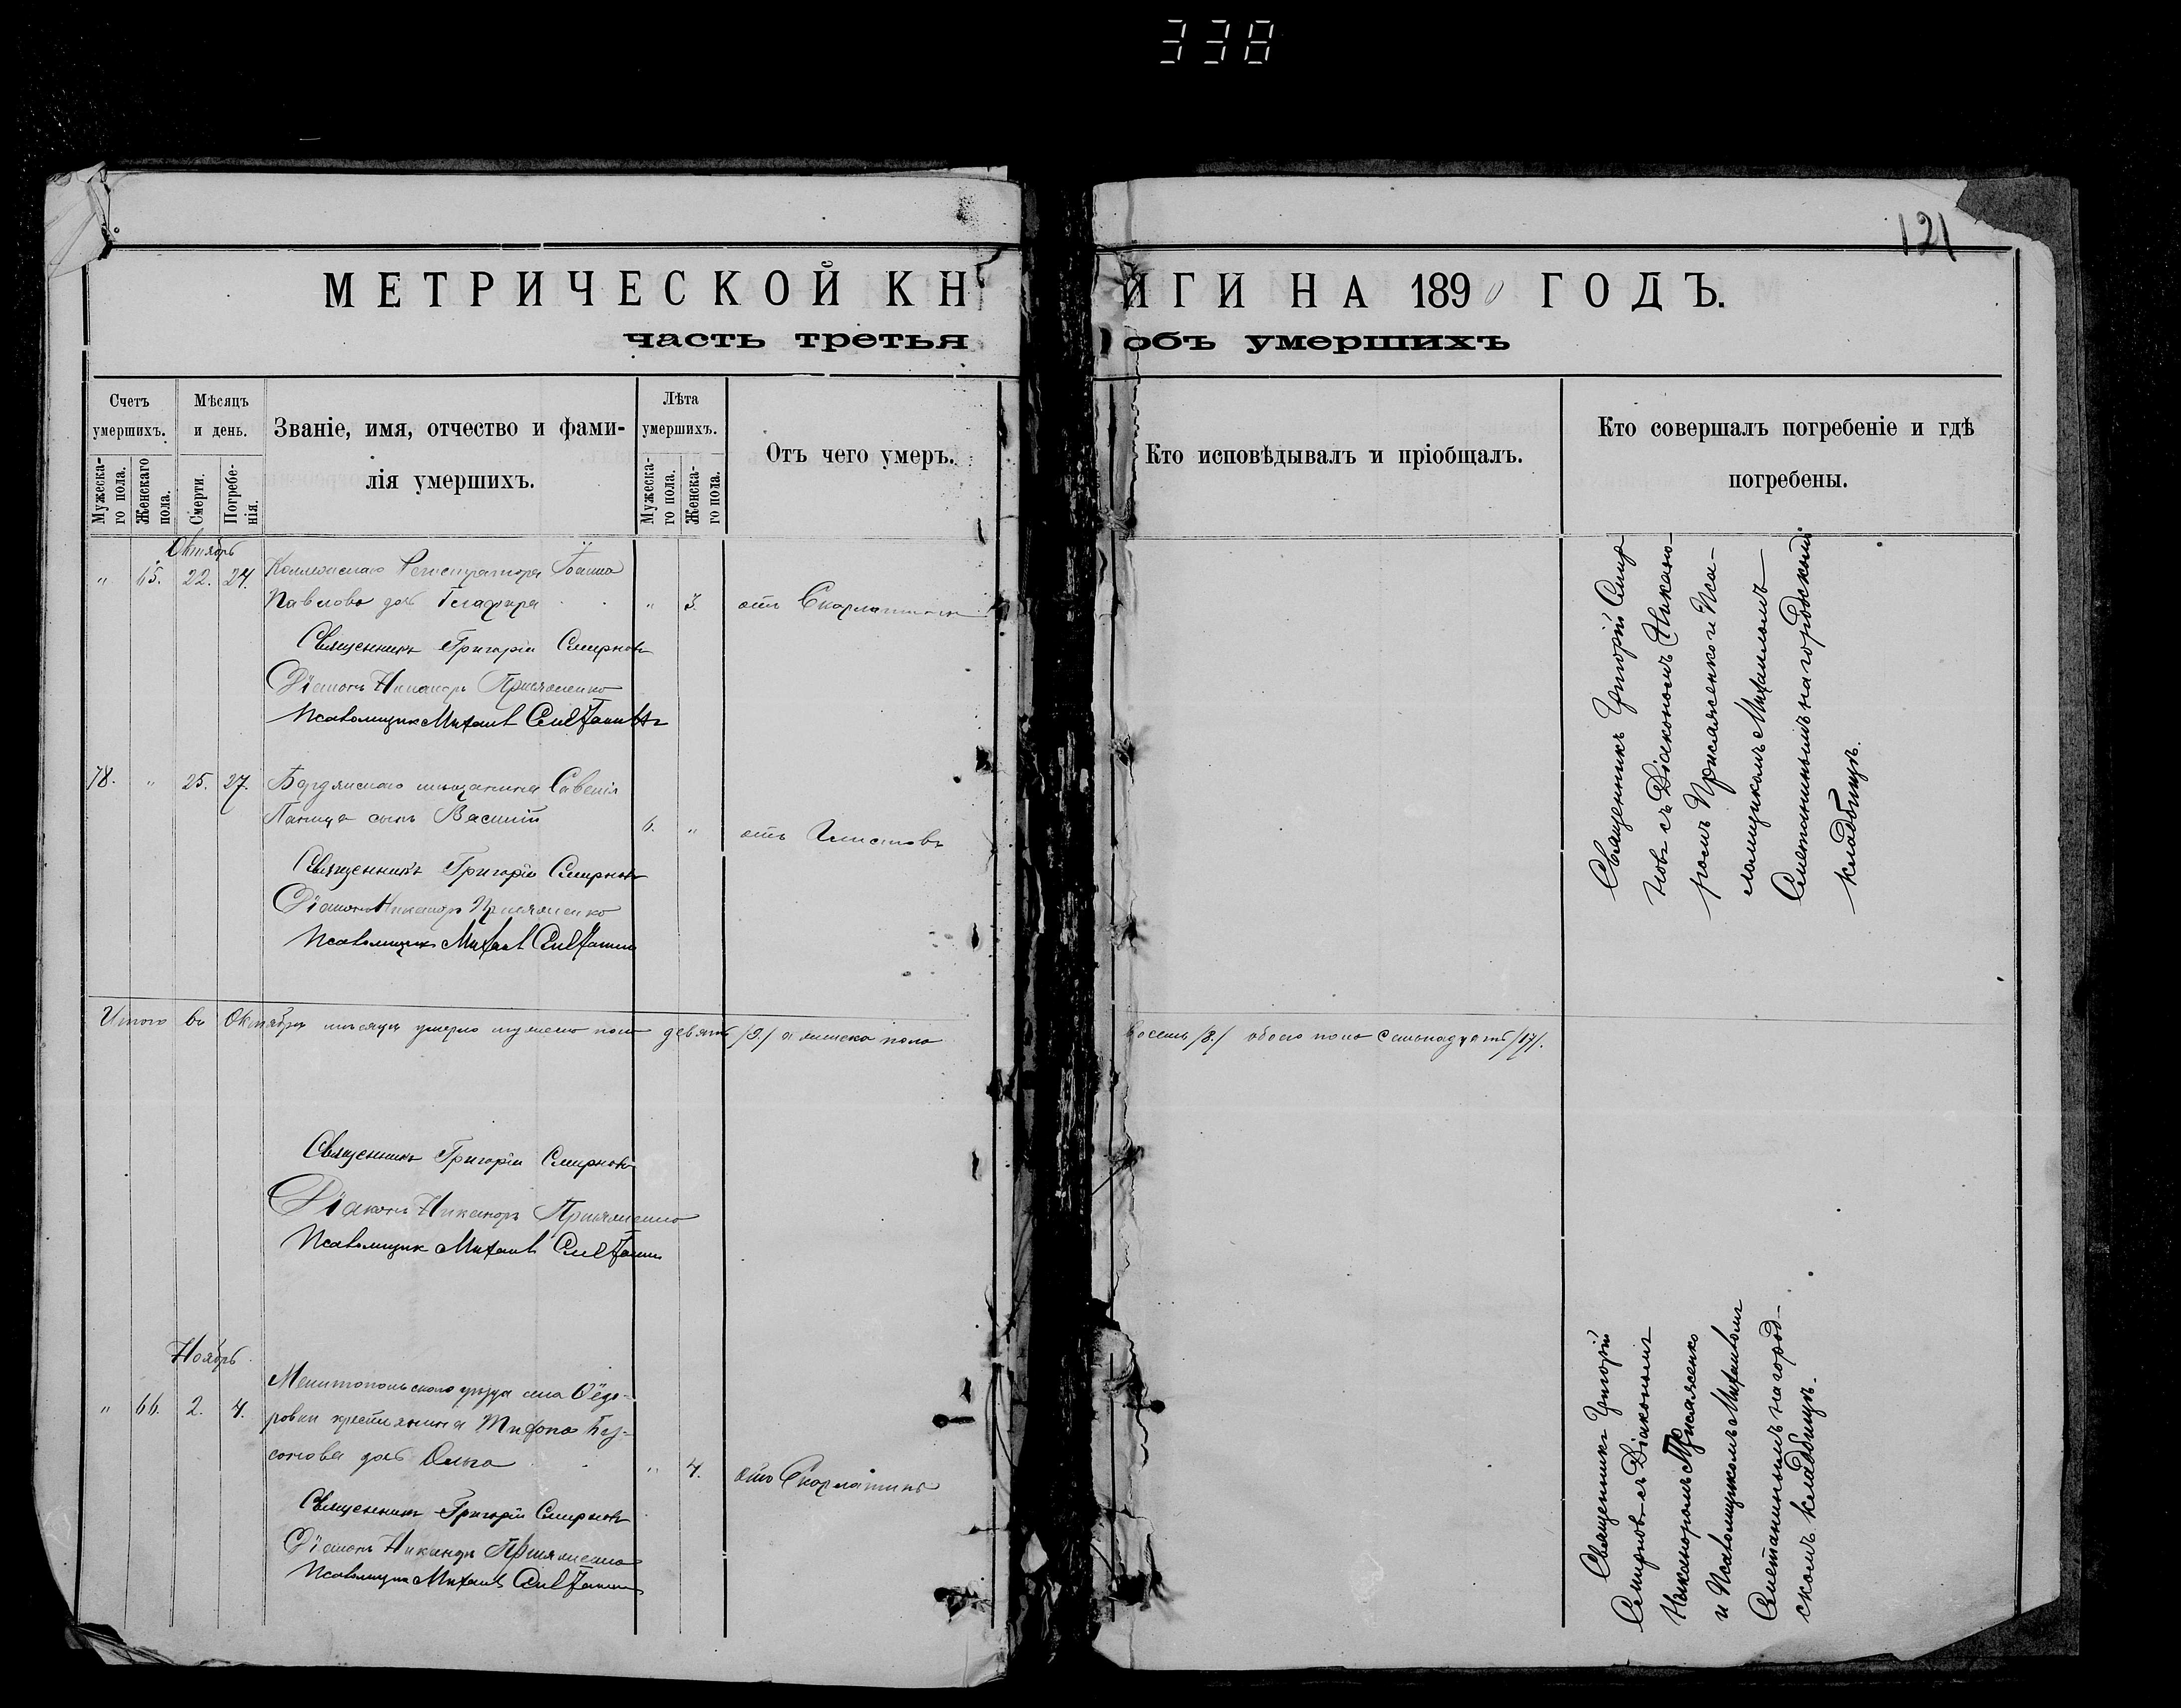 338
121
МЕТРИЧЕСКОЙ КНИГИ НА 1890 ГОДЪ.
часть третья объ умершихъ
Счетъ умершихъ.
Мужеска-
го пола.
Женскаго
пола.
Мѣсяцъ
и день.
Смерти.
Погребе-
нія.
Званіе, имя, отчество и фами-
лія умершихъ.
Лѣта
умершихъ.
Мужеска-
го пола.
Женска-
го пола.
Отъ чего умеръ.
Кто исповѣдывалъ и пріобщалъ.
Кто совершалъ погребеніе и гдѣ
погребены.
Октябрь
" 65. 22. 24. Коллежскаго Регистратора Іоанна
Павлова дочь Глафира " 3. отъ Скарлатины
Священникъ Григорій Смирновъ
Діаконъ Никаноръ Присяженко
Псаломщикъ Михаилъ Сметанинъ
Священникъ Григорій Смир-
новъ съ Діакономъ Никано-
ромъ Присяженко и Пса-
ломщикомъ Михаиломъ
Сметанинымъ на городскомъ
кладбищѣ.
78. " 25. 27. Бердянскаго мѣщанина Савелія
сынъ Василій 6. " отъ
Священникъ Григорій Смирновъ
Діаконъ Никаноръ Присяженко
Псаломщикъ Михаилъ Сметанинъ
Итого въ Октябрѣ мѣсяцѣ умерло мужеска пола девять /9./ а женска пола восемь /8./ обоего пола семьнадцать /17/.
Священникъ Григорій Смирновъ
Діаконъ Никаноръ Присяженко
Псаломщикъ Михаилъ Сметанинъ
Ноябрь.
" 66. 2. 4. Мелитопольскаго уѣзда села Ѳедо-
ровки крестьянина Тифона Без-
сонова дочь Ольга " 4. отъ Скарлатины
Священникъ Григорій Смирновъ
Діаконъ Никаноръ Присяженко
Псаломщикъ Михаилъ Сметанинъ
Священникъ Григорій
Смирновъ съ Діакономъ
Никаноромъ Присяженко
и Псаломщикомъ Михаиломъ
Сметанинымъ на город-
скомъ кладбищѣ.